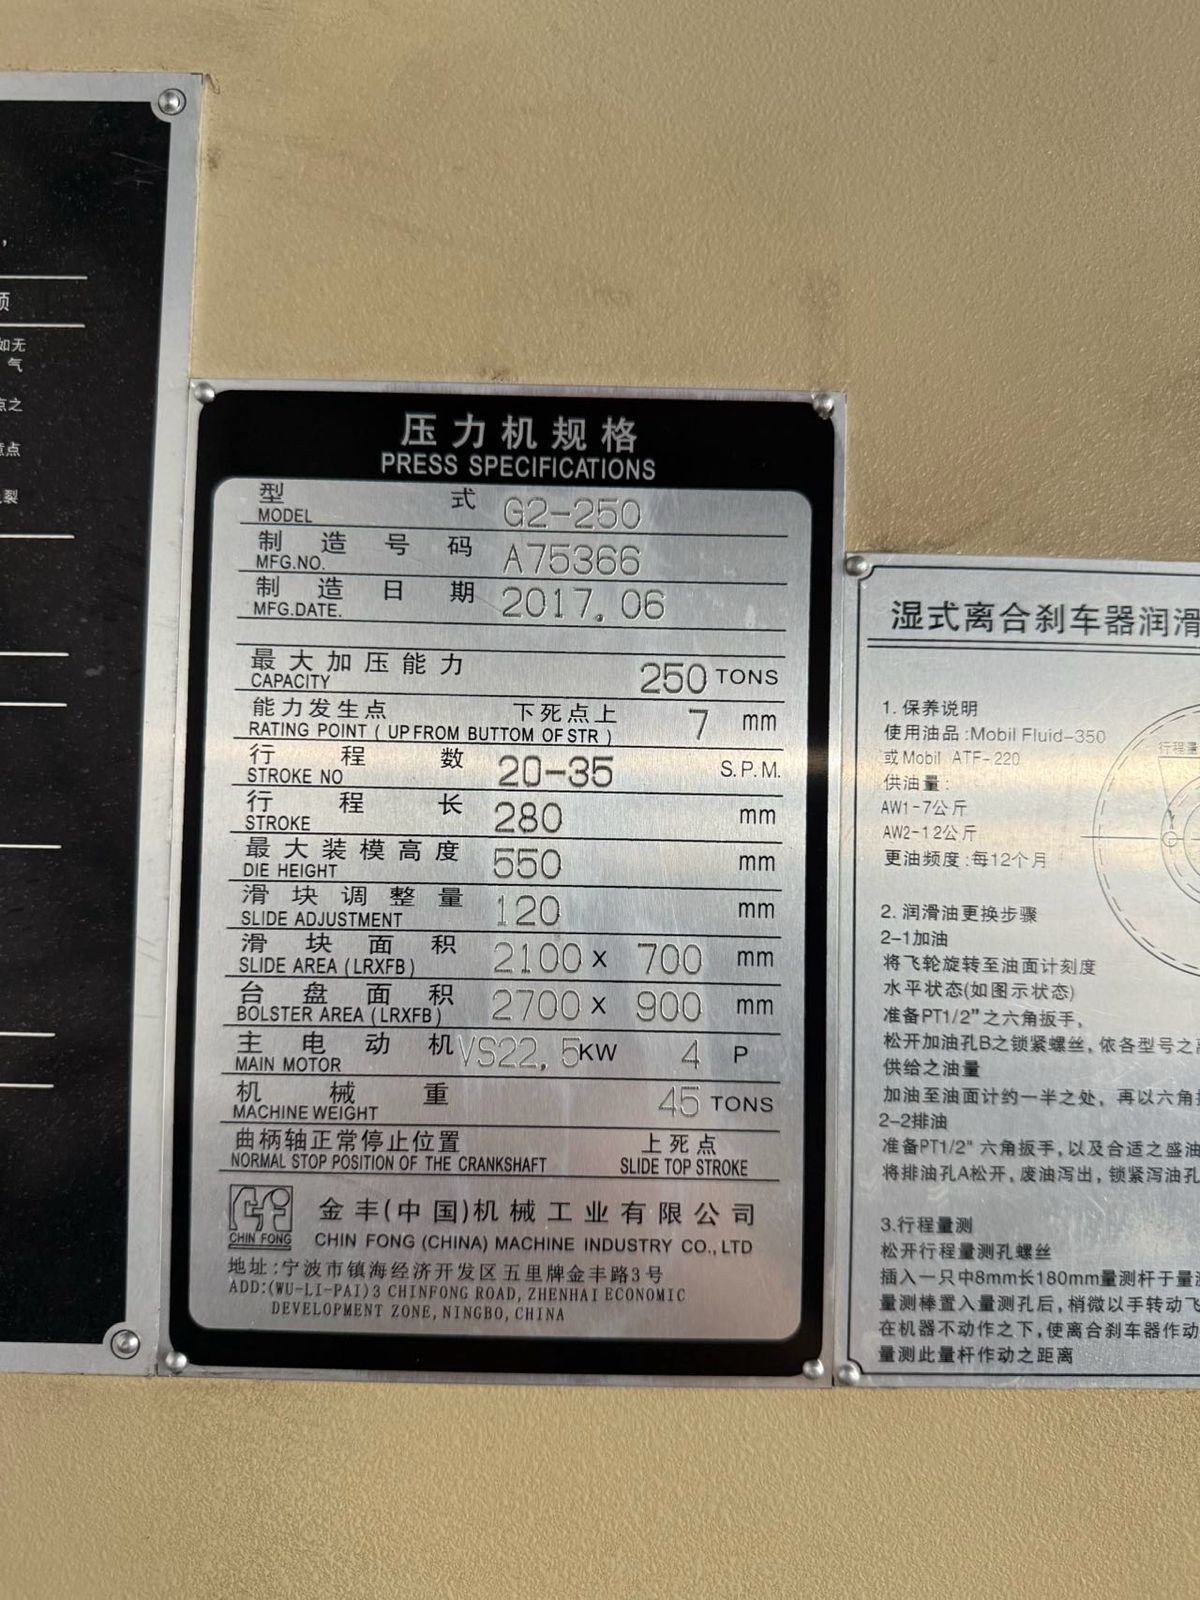 ,
项
如无
气
点之
意点
裂
压力机规格
PRESS SPECIFICATIONS
型 式 G2-250
MODEL
制造号码 A75366
MFG.NO.
制造日期 2017.06
MFG.DATE.
最大加压能力 250 TONS
CAPACITY
能力发生点 下死点上 7 mm
RATING POINT ( UP FROM BUTTOM OF STR )
行程数 20-35 S.P.M.
STROKE NO
行程长 280 mm
STROKE
最大装模高度 550 mm
DIE HEIGHT
滑块调整量 120 mm
SLIDE ADJUSTMENT
滑块面积 2100 x 700 mm
SLIDE AREA (LRXFB)
台盘面积 2700 x 900 mm
BOLSTER AREA (LRXFB)
主电动机 VS22.5KW 4 P
MAIN MOTOR
机械重 45 TONS
MACHINE WEIGHT
曲柄轴正常停止位置 上死点
NORMAL STOP POSITION OF THE CRANKSHAFT SLIDE TOP STROKE
CHIN FONG
金丰(中国)机械工业有限公司
CHIN FONG (CHINA) MACHINE INDUSTRY CO., LTD
地址:宁波市镇海经济开发区五里牌金丰路3号
ADD:(WU-LI-PAI)3 CHINFONG ROAD, ZHENHAI ECONOMIC
DEVELOPMENT ZONE, NINGBO, CHINA
湿式离合刹车器润滑
1. 保养说明
使用油品:Mobil Fluid-350
或Mobil ATF-220
供油量:
AW1-7公斤
AW2-12公斤
更油频度:每12个月
行程量
2. 润滑油更换步骤
2-1加油
将飞轮旋转至油面计刻度
水平状态(如图示状态)
准备PT1/2"之六角扳手,
松开加油孔B之锁紧螺丝,依各型号之
供给之油量
加油至油面计约一半之处, 再以六角
2-2排油
准备PT1/2" 六角扳手,以及合适之盛油
将排油孔A松开, 废油泻出, 锁紧泻油孔
3.行程量测
松开行程量测孔螺丝
插入一只中8mm长180mm量测杆于量
量测棒置入量测孔后, 梢微以手转动飞
在机器不动作之下,使离合刹车器作动
量测此量杆作动之距离